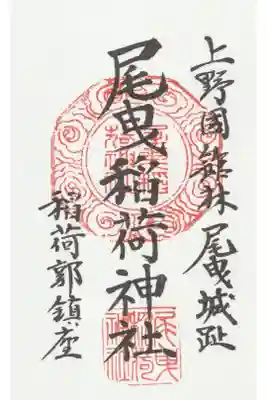 上野國館林尾曳城趾
尾曳稲荷神社
稲荷郭鎮座